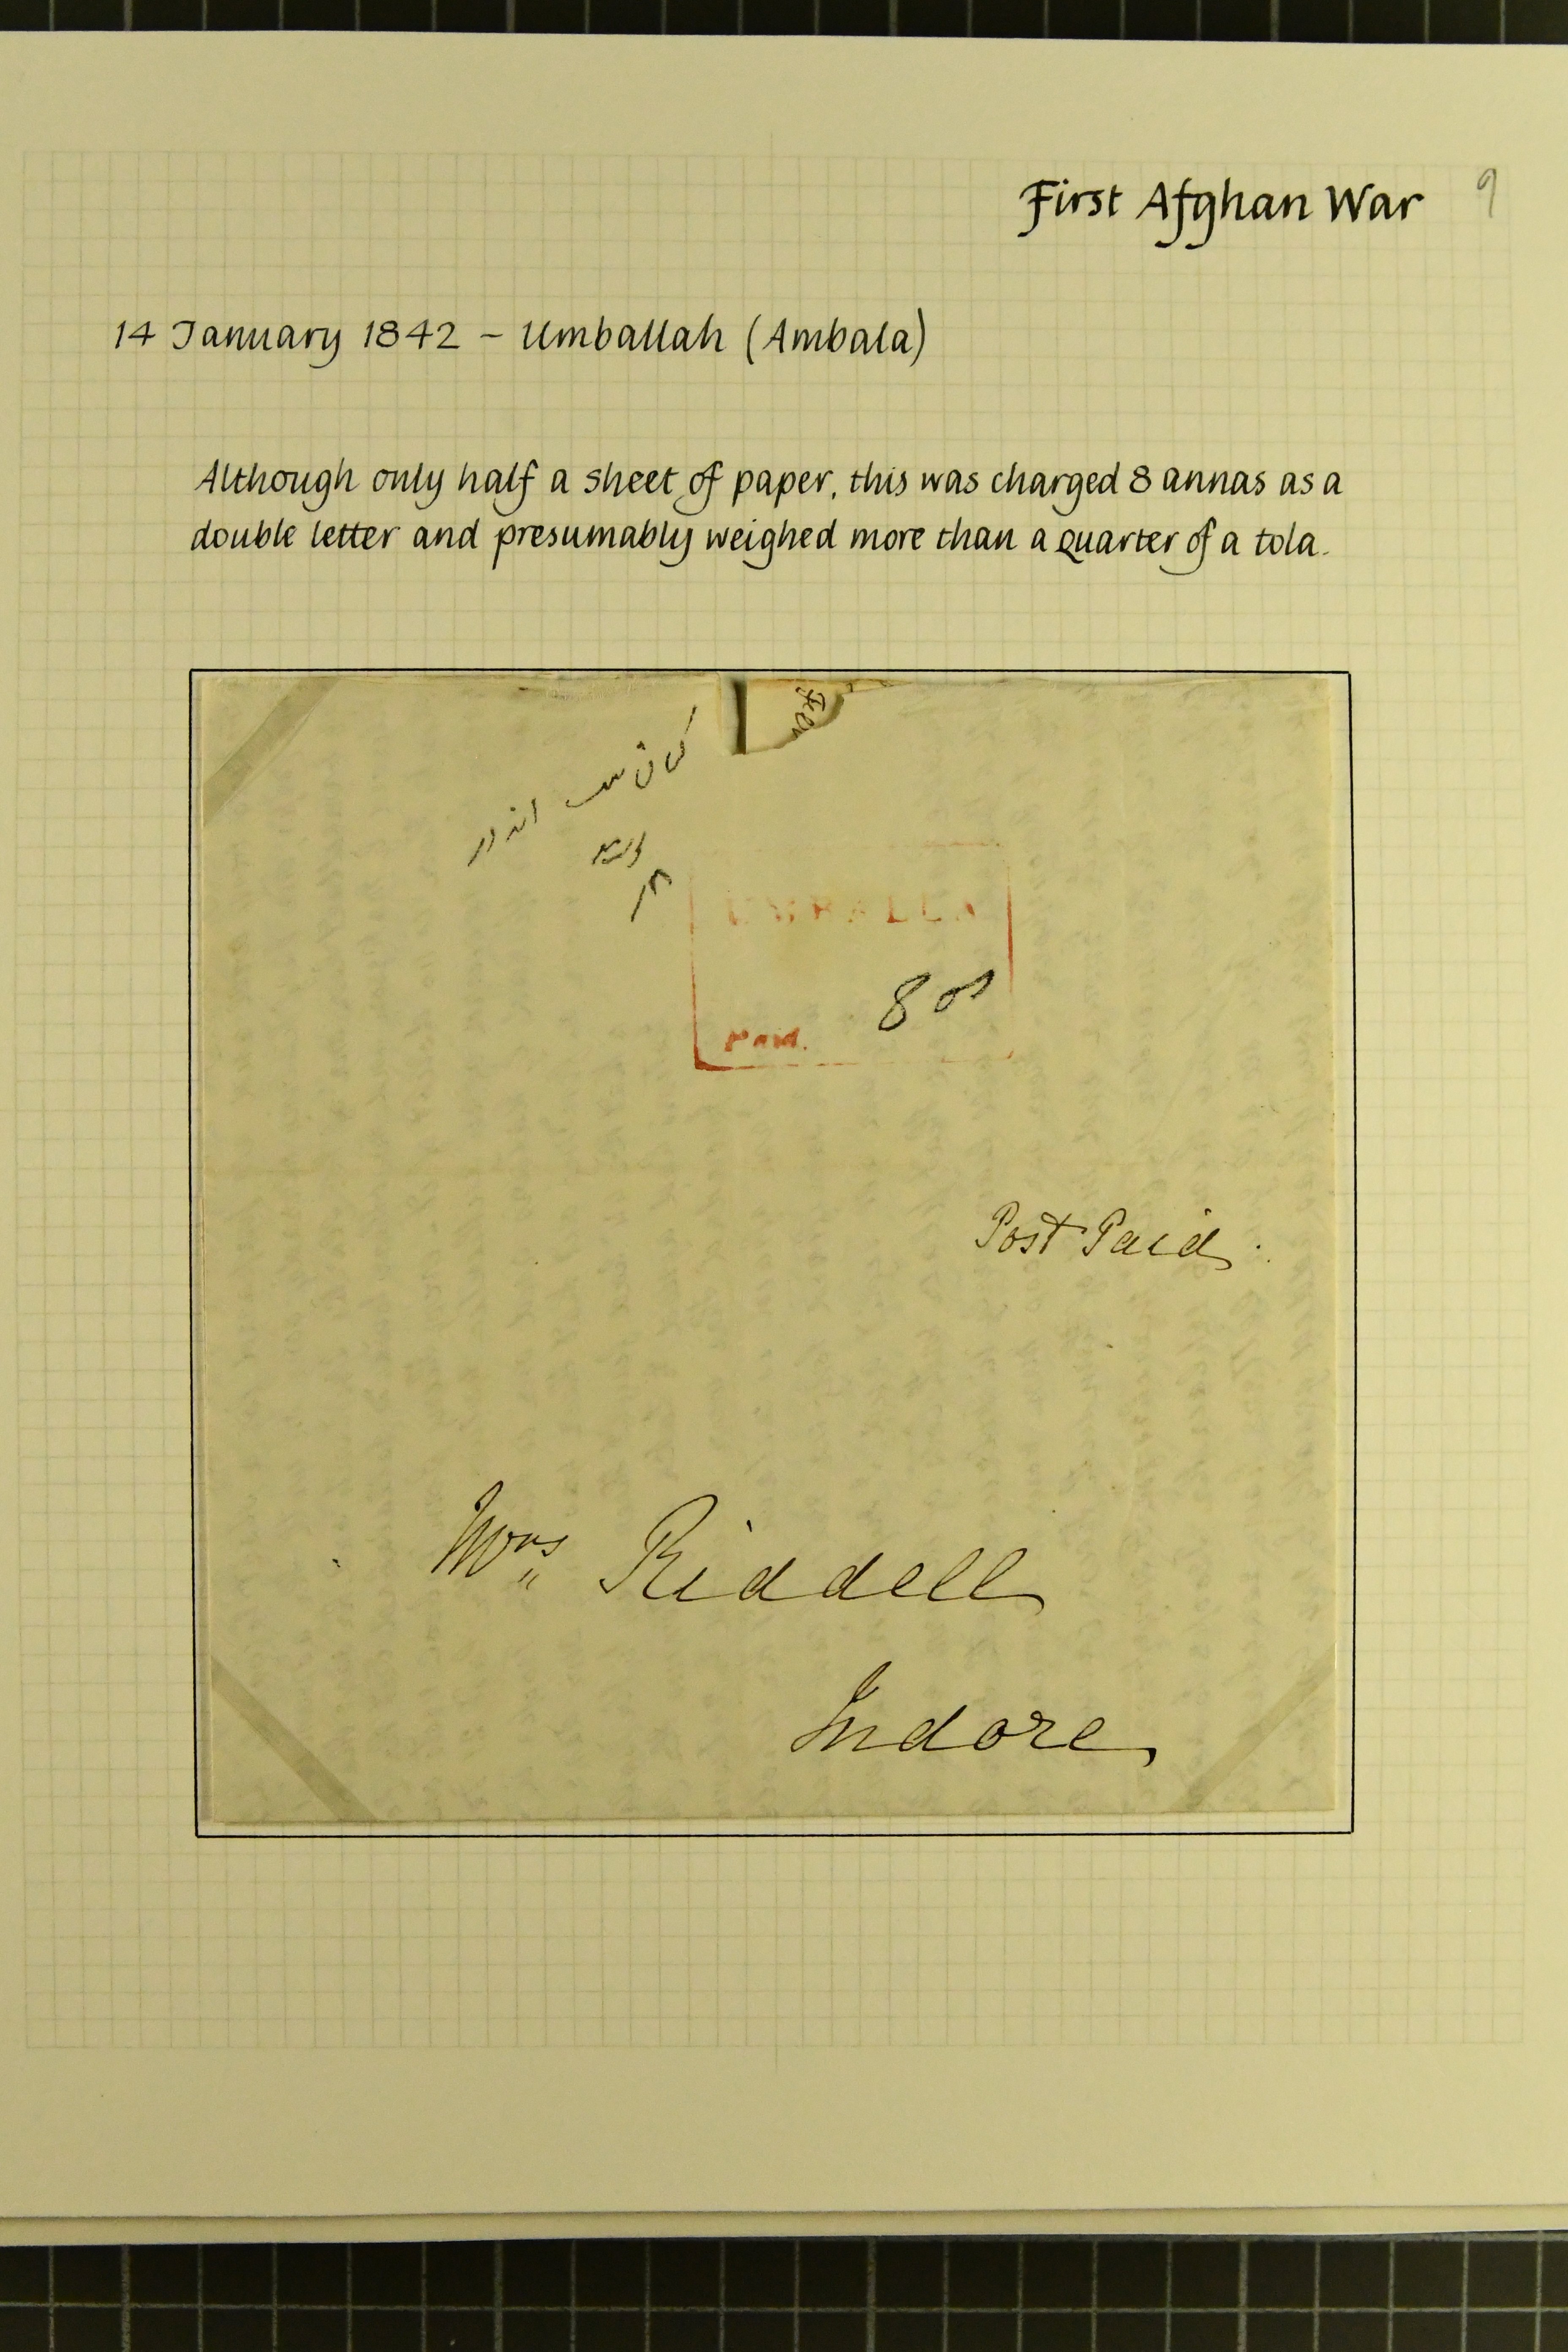 First Afghan War 9
14 January 1842 – Umballah (Ambala)
Although only half a sheet of paper, this was charged 8 annas as a
double letter and presumably weighed more than a quarter of a tola.
اندور
UMBALLA
8 as
Paid.
Post Paid.
Mrs Riddell
Indore